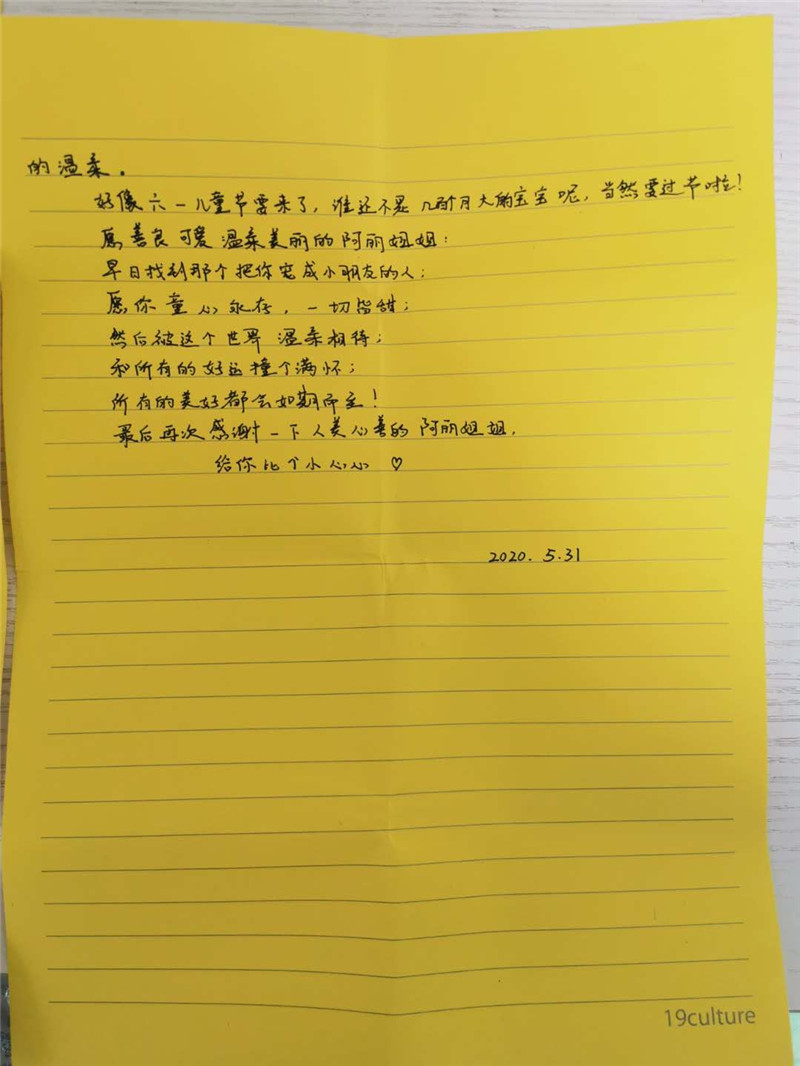 的温柔.
好像六一儿童节要来了，谁还不是几百个月大的宝宝呢，当然要过节啦！
愿善良可爱温柔美丽的阿丽姐姐：
早日找到那个把你宠成小朋友的人；
愿你童心永存，一切皆甜；
然后被这个世界温柔相待；
和所有的好运撞个满怀；
所有的美好都会如期而至！
最后再次感谢一下人美心善的阿丽姐姐.
给你比个小心心♡
2020.5.31
19culture